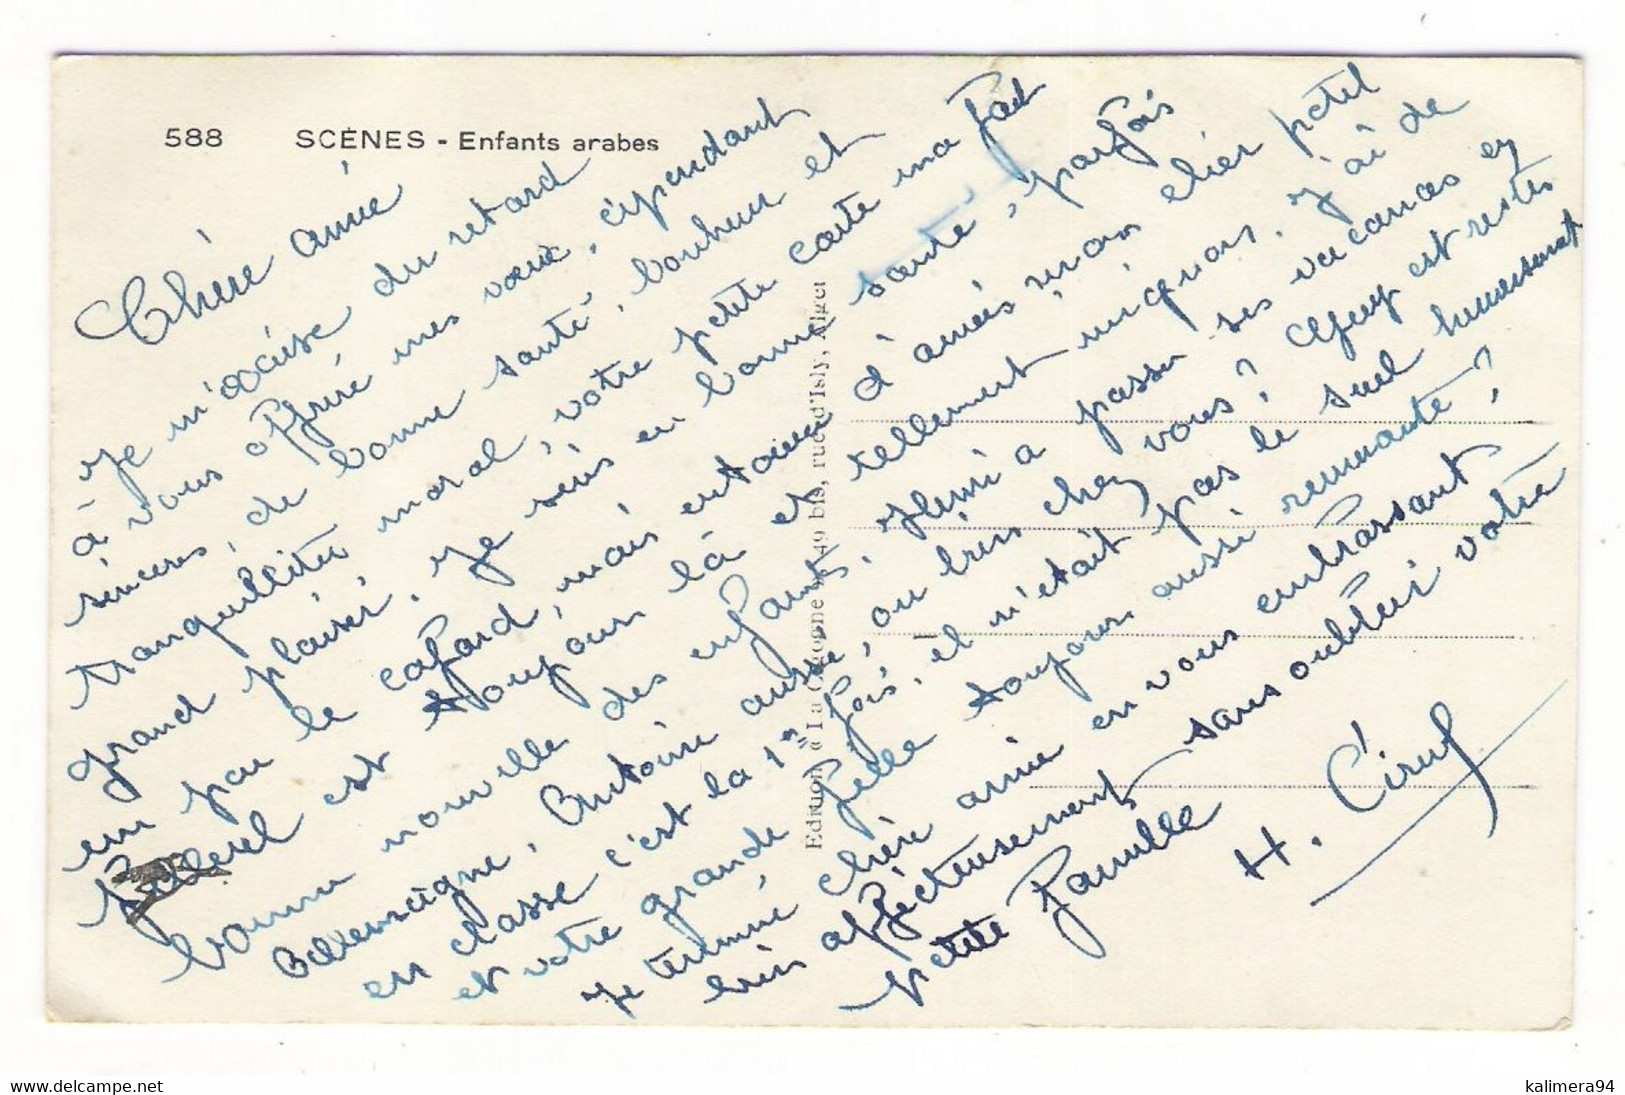 588 SCÈNES - Enfants arabes
Chère amie
Je m'excuse du retard
à vous offrire mes voeux, cependant
sincères, de bonne santé, bonheur et
tranquillités moral, votre petite carte ma fait
grand plaisir, Je suis en bonne santé, parfois
un peu le cafard, mais entourer d'amis, mon cher petit
est toujour là et tellement mignon. J'ai de
bonne nouvelle des enfants, Henri a passer ses vacances en
Allemeigne, Antoine aussi, ou brin chez vous? est restés
en classe c'est la 1re fois, et n'était pas le seul heureusement
et votre grande fille toujours aussi remuante?
Je terminé chère amie en vous embrassant
bien affectueusement sans oublier votre
petite famille
H.
Edition "La Cigogne", 49 bis, rue d'Isly, Alger
www.delcampe.net
kalimera94